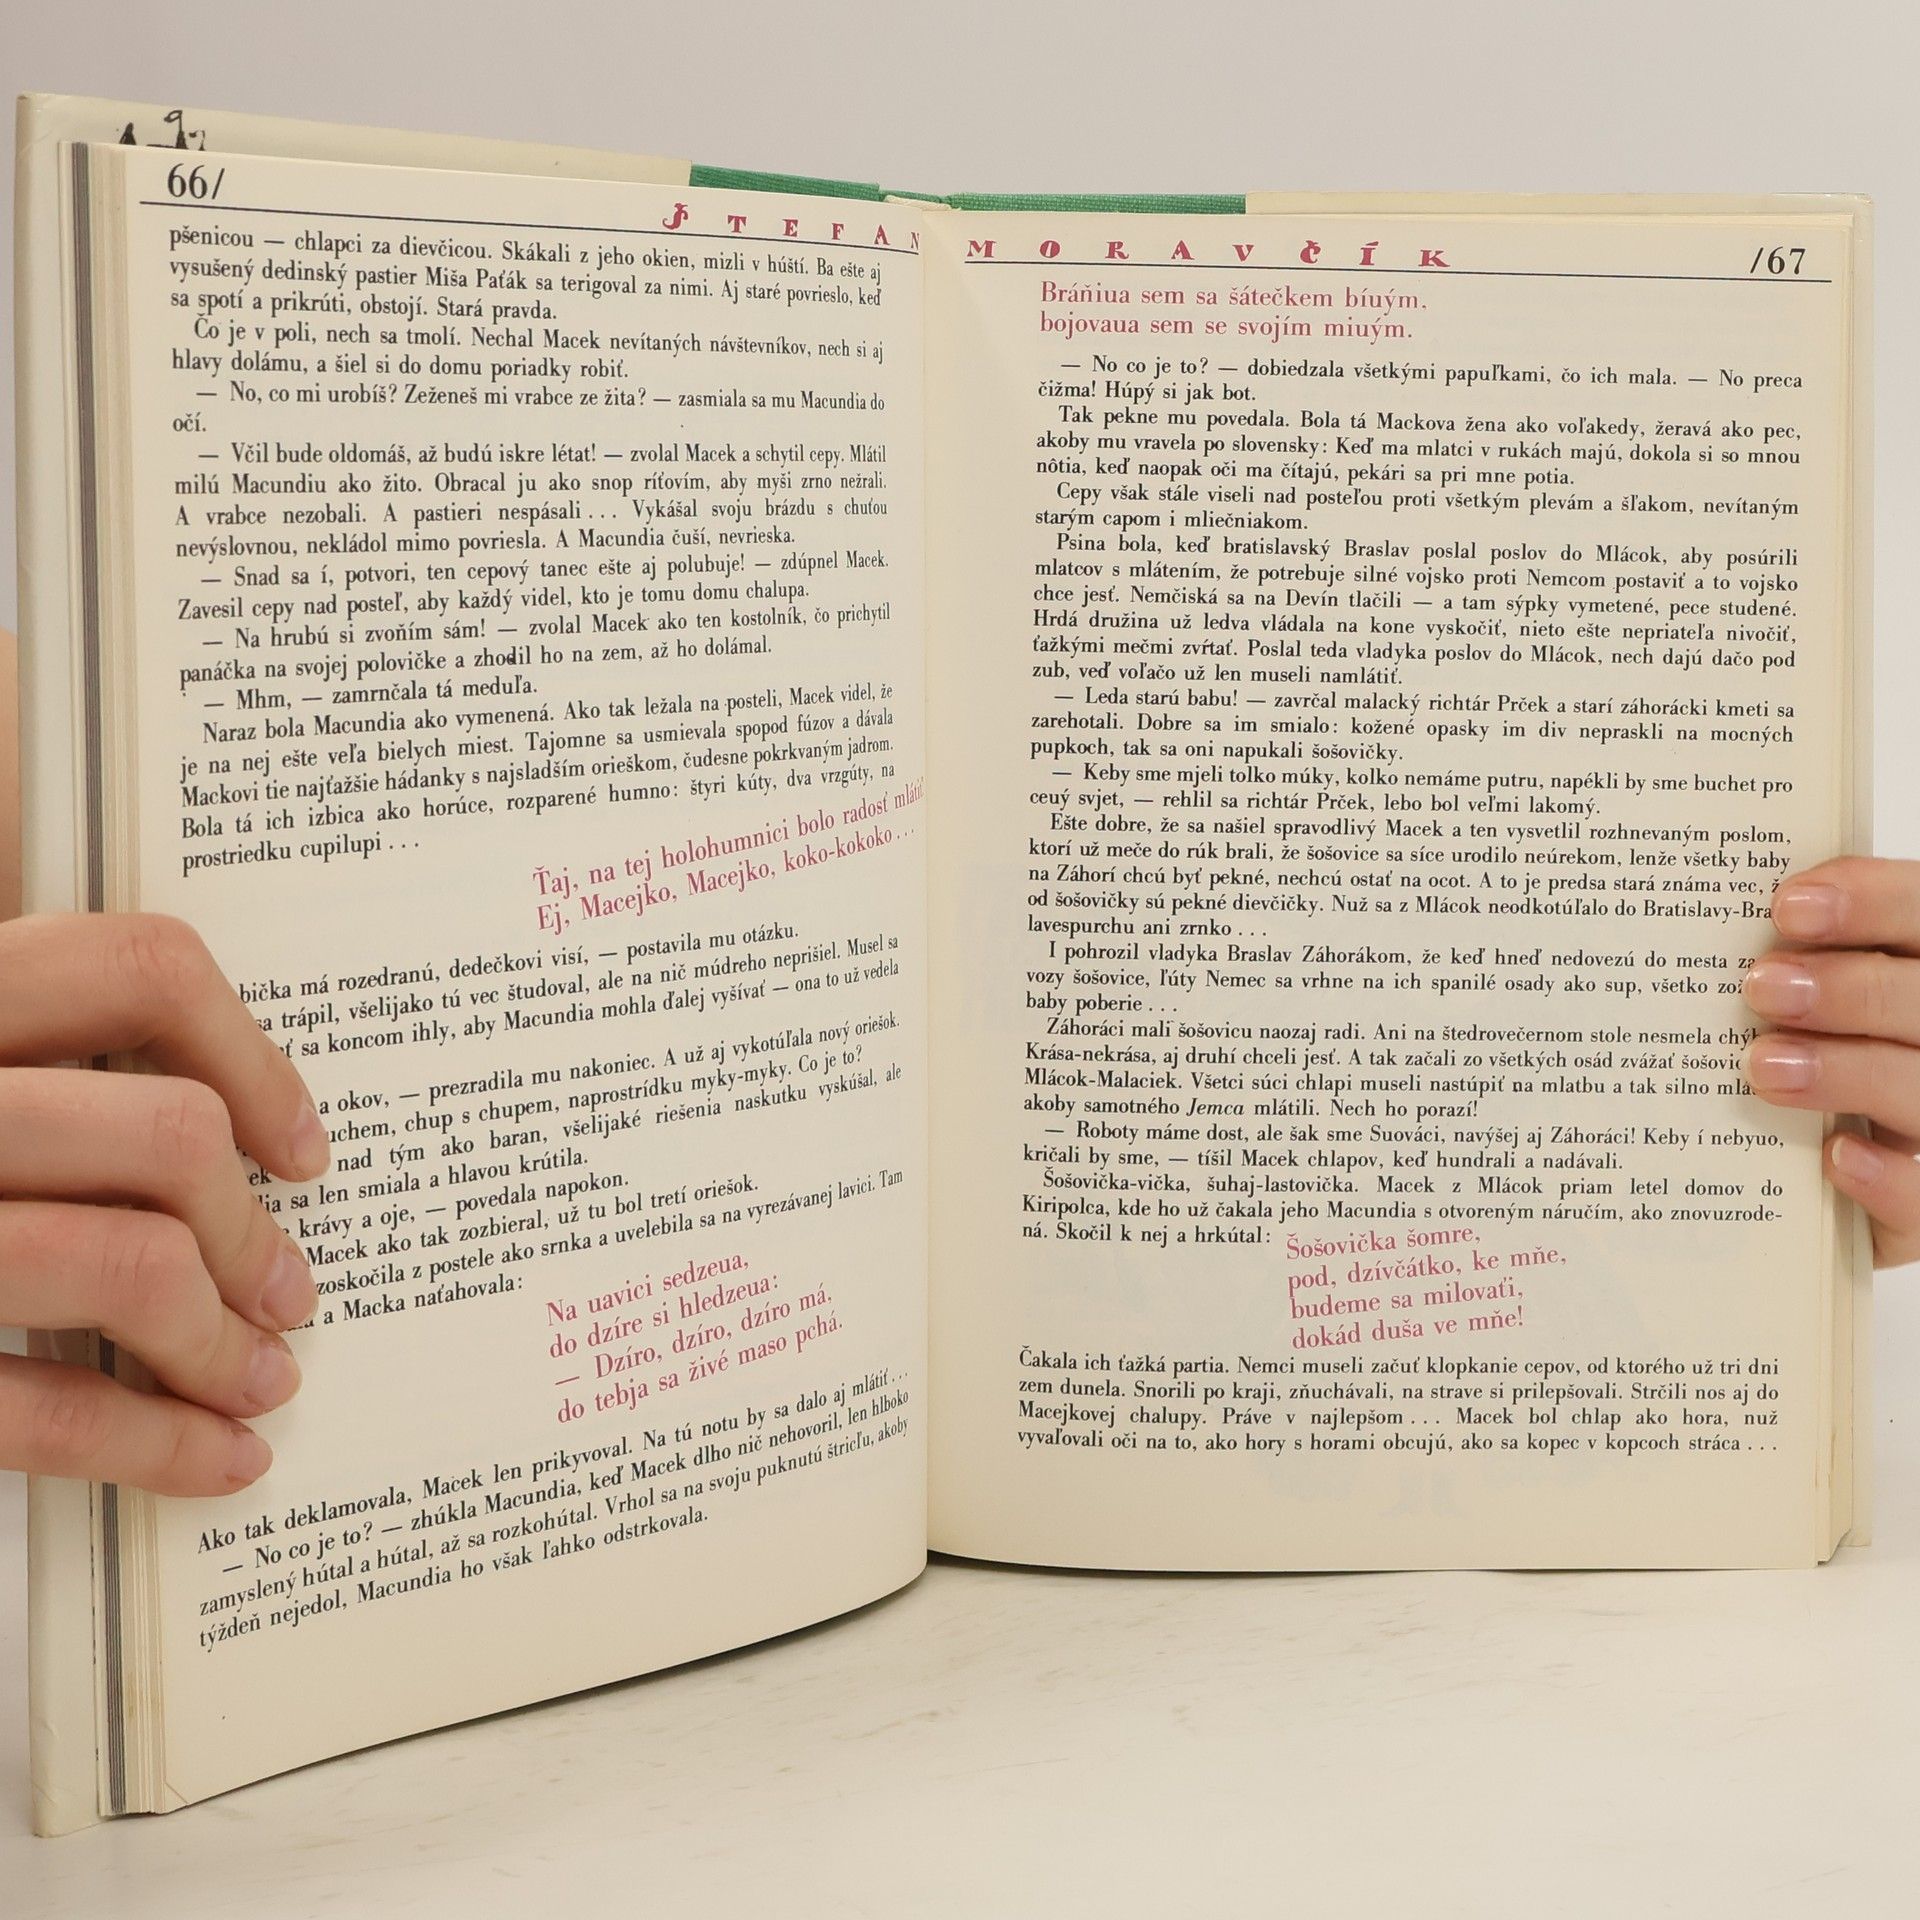 66/
ŠTEFAN
pšenicou — chlapci za dievčicou. Skákali z jeho okien, mizli v húští. Ba ešte aj
vysušený dedinský pastier Miša Paťák sa terigoval za nimi. Aj staré povrieslo, keď
sa spotí a prikrúti, obstojí. Stará pravda.
Čo je v poli, nech sa tmolí. Nechal Macek nevítaných návštevníkov, nech si aj
hlavy dolámu, a šiel si do domu poriadky robiť.
— No, co mi urobíš? Zeženeš mi vrabce ze žita? — zasmiala sa mu Macundia do
očí.
— Včil bude oldomáš, až budú iskre létat! — zvolal Macek a schytil cepy. Mlátil
milú Macundiu ako žito. Obracal ju ako snop ríťovím, aby myši zrno nežrali.
A vrabce nezobali. A pastieri nespásali . . . Vykášal svoju brázdu s chuťou
nevýslovnou, nekládol mimo povriesla. A Macundia čuší, nevrieska.
— Snad sa í, potvori, ten cepový tanec ešte aj polubuje! — zdúpnel Macek.
Zavesil cepy nad posteľ, aby každý videl, kto je tomu domu chalupa.
— Na hrubú si zvoňím sám! — zvolal Macek ako ten kostolník, čo prichytil
panáčka na svojej polovičke a zhodil ho na zem, až ho dolámal.
— Mhm, — zamrnčala tá meduľa.
Naraz bola Macundia ako vymenená. Ako tak ležala na posteli, Macek videl, že
je na nej ešte veľa bielych miest. Tajomne sa usmievala spopod fúzov a dávala
Mackovi tie najťažšie hádanky s najsladším orieškom, čudesne pokrkvaným jadrom.
Bola tá ich izbica ako horúce, rozparené humno: štyri kúty, dva vrzgúty, na
prostriedku cupilupi . . .
Ťaj, na tej holohumnici bolo radosť mlátiť.
Ej, Macejko, Macejko, koko-kokoko . . .
bička má rozedranú, dedečkovi visí, — postavila mu otázku.
sa trápil, všelijako tú vec študoval, ale na nič múdreho neprišiel. Musel sa
sa koncom ihly, aby Macundia mohla ďalej vyšívať — ona to už vedela
a okov, — prezradila mu nakoniec. A už aj vykotúľala nový oriešok.
uchem, chup s chupem, naprostrídku myky-myky. Co je to?
nad tým ako baran, všelijaké riešenia naskutku vyskúšal, ale
sa len smiala a hlavou krútila.
krávy a oje, — povedala napokon.
Macek ako tak zozbieral, už tu bol tretí oriešok.
zoskočila z postele ako srnka a uvelebila sa na vyrezávanej lavici. Tam
a Macka naťahovala:
Na uavici sedzeua,
do dzíre si hledzeua:
— Dzíro, dzíro, dzíro má,
do tebja sa živé maso pchá.
Ako tak deklamovala, Macek len prikyvoval. Na tú notu by sa dalo aj mlátiť . . .
— No co je to? — zhúkla Macundia, keď Macek dlho nič nehovoril, len hlboko
zamyslený hútal a hútal, až sa rozkohútal. Vrhol sa na svoju puknutú štricľu, akoby
týždeň nejedol, Macundia ho však ľahko odstrkovala.
MORAVČÍK
/67
Bráňiua sem sa šátečkem bíuým,
bojovaua sem se svojím miuým.
— No co je to? — dobiedzala všetkými papuľkami, čo ich mala. — No preca
čižma! Húpý si jak bot.
Tak pekne mu povedala. Bola tá Mackova žena ako voľakedy, žeravá ako pec,
akoby mu vravela po slovensky: Keď ma mlatci v rukách majú, dokola si so mnou
nôtia, keď naopak oči ma čítajú, pekári sa pri mne potia.
Cepy však stále viseli nad posteľou proti všetkým plevám a šľakom, nevítaným
starým capom i mliečniakom.
Psina bola, keď bratislavský Braslav poslal poslov do Mlácok, aby posúrili
mlatcov s mlátením, že potrebuje silné vojsko proti Nemcom postaviť a to vojsko
chce jesť. Nemčiská sa na Devín tlačili — a tam sýpky vymetené, pece studené.
Hrdá družina už ledva vládala na kone vyskočiť, nieto ešte nepriateľa nivočiť,
ťažkými mečmi zvŕtať. Poslal teda vladyka poslov do Mlácok, nech dajú dačo pod
zub, veď voľačo už len museli namlátiť.
— Leda starú babu! — zavrčal malacký richtár Prček a starí záhorácki kmeti sa
zarehotali. Dobre sa im smialo: kožené opasky im div nepraskli na mocných
pupkoch, tak sa oni napukali šošovičky.
— Keby sme mjeli tolko múky, kolko nemáme putru, napékli by sme buchet pro
ceuý svjet, — rehlil sa richtár Prček, lebo bol veľmi lakomý.
Ešte dobre, že sa našiel spravodlivý Macek a ten vysvetlil rozhnevaným poslom,
ktorí už meče do rúk brali, že šošovice sa síce urodilo neúrekom, lenže všetky baby
na Záhorí chcú byť pekné, nechcú ostať na ocot. A to je predsa stará známa vec,
od šošovičky sú pekné dievčičky. Nuž sa z Mlácok neodkotúľalo do Bratislavy-Bra
lavespurchu ani zrnko . . .
I pohrozil vladyka Braslav Záhorákom, že keď hneď nedovezú do mesta
vozy šošovice, ľúty Nemec sa vrhne na ich spanilé osady ako sup, všetko
baby poberie . . .
Záhoráci mali šošovicu naozaj radi. Ani na štedrovečernom stole nesmela
Krása-nekrása, aj druhí chceli jesť. A tak začali zo všetkých osád zvážať
Mlácok-Malaciek. Všetci súci chlapi museli nastúpiť na mlatbu a tak silno
akoby samotného Jemca mlátili. Nech ho porazí!
— Roboty máme dost, ale šak sme Suováci, navýšej aj Záhoráci! Keby í nebyuo,
kričali by sme, — tíšil Macek chlapov, keď hundrali a nadávali.
Šošovička-vička, šuhaj-lastovička. Macek z Mlácok priam letel domov do
Kiripolca, kde ho už čakala jeho Macundia s otvoreným náručím, ako znovuzrode-
ná. Skočil k nej a hrkútal:
Šošovička šomre,
pod, dzívčátko, ke mňe,
budeme sa milovaťi,
dokád duša ve mňe!
Čakala ich ťažká partia. Nemci museli začuť klopkanie cepov, od ktorého už tri dni
zem dunela. Snorili po kraji, zňuchávali, na strave si prilepšovali. Strčili nos aj do
Macejkovej chalupy. Práve v najlepšom . . . Macek bol chlap ako hora, nuž
vyvaľovali oči na to, ako hory s horami obcujú, ako sa kopec v kopcoch stráca . . .